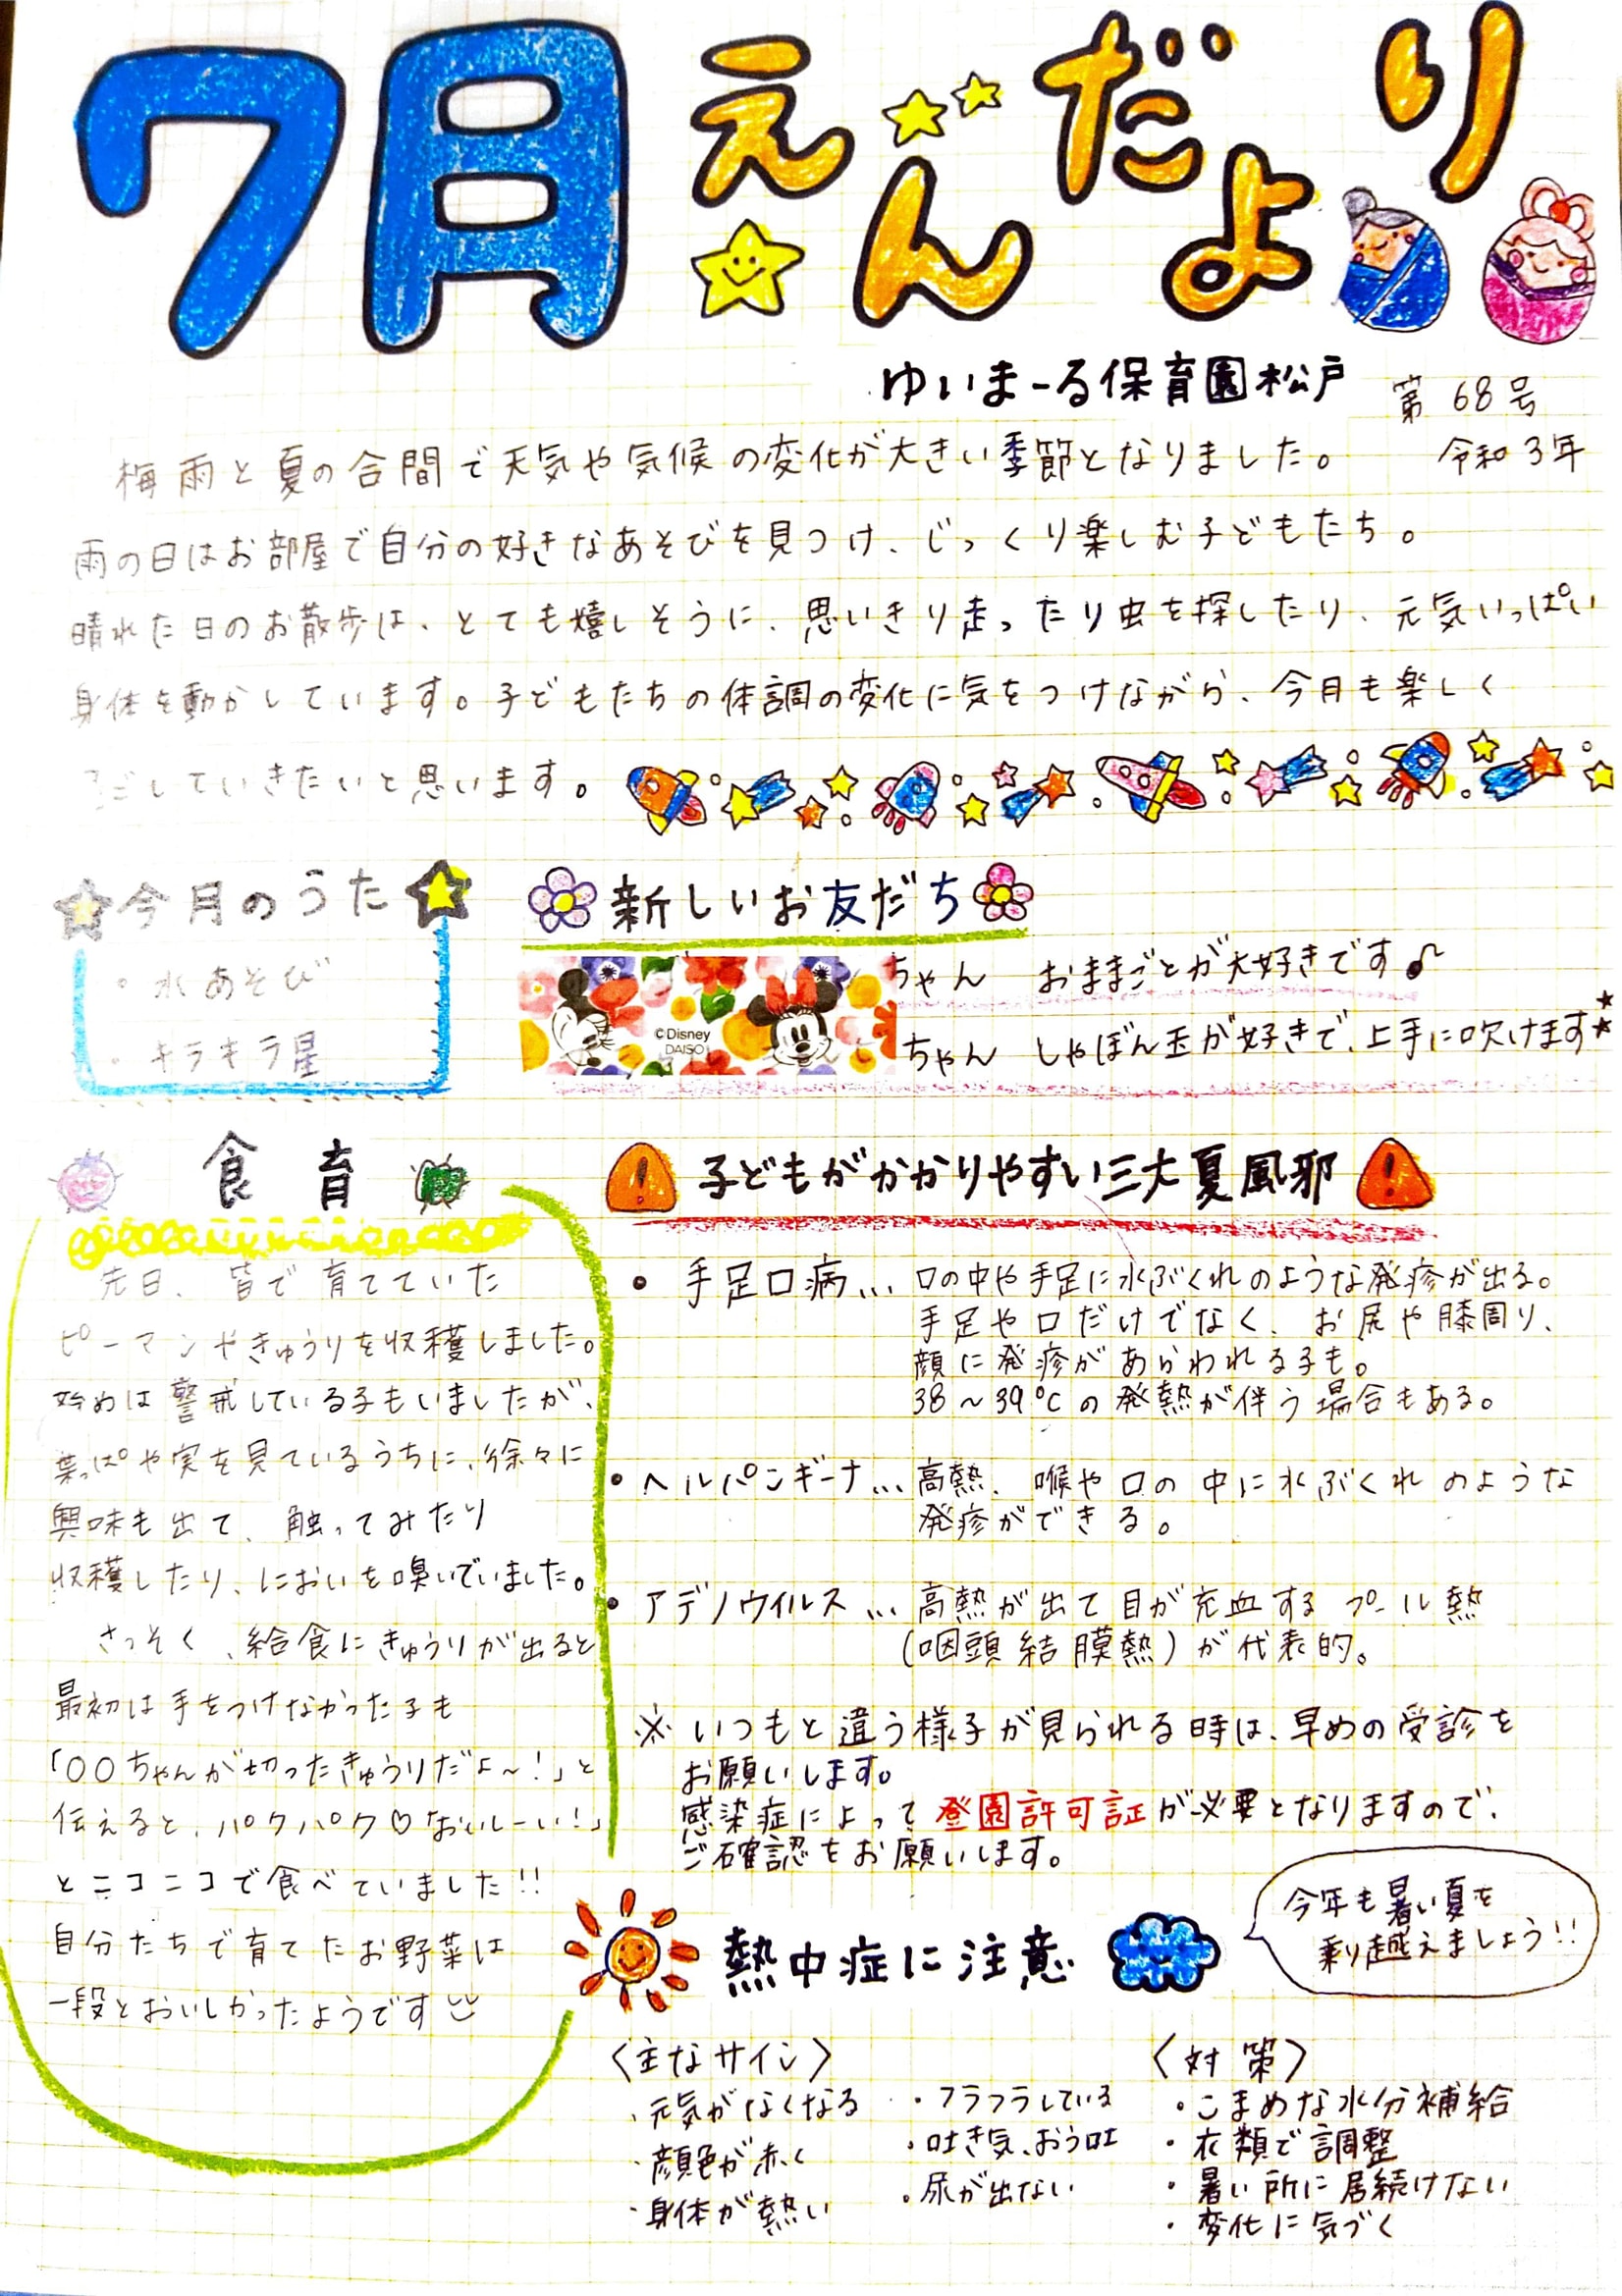 7月えんだより
ゆいまーる保育園松戸
第68号
令和3年
梅雨と夏の合間で天気や気候の変化が大きい季節となりました。
雨の日はお部屋で自分の好きなあそびを見つけ、じっくり楽しむ子どもたち。
晴れた日のお散歩は、とても嬉しそうに、思いきり走ったり虫を探したり、元気いっぱい
身体を動かしています。子どもたちの体調の変化に気をつけながら、今月も楽しく
していきたいと思います。
今月のうた
・水あそび
・キラキラ星
新しいお友だち
ちゃん おままごとが大好きです♪
ちゃん しゃぼん玉が好きで、上手に吹けます
©Disney
DAISO
食育
先日、皆で育てていた
ピーマンやきゅうりを収穫しました。
始めは警戒している子もいましたが、
葉っぱや実を見ているうちに、徐々に
興味も出て、触ってみたり
収穫したり、においを嗅いでいました。
さっそく、給食にきゅうりが出ると
最初は手をつけなかった子も
「○○ちゃんが切ったきゅうりだよ~!」と
伝えると、パクパク♡おいしーい!」
とニコニコで食べていました!!
自分たちで育てたお野菜は
一段とおいしかったようです
子どもがかかりやすい三大夏風邪
・手足口病… 口の中や手足に水ぶくれのような発疹が出る。
手足や口だけでなく、お尻や膝周り、
顔に発疹があらわれる子も。
38~39℃の発熱が伴う場合もある。
・ヘルパンギーナ… 高熱、喉や口の中に水ぶくれのような
発疹ができる。
・アデノウイルス… 高熱が出て目が充血するプール熱
(咽頭結膜熱)が代表的。
※いつもと違う様子が見られる時は、早めの受診を
お願いします。
感染症によって登園許可証が必要となりますので、
ご確認をお願いします。
熱中症に注意
今年も暑い夏を
乗り越えましょう!!
〈主なサイン〉
・元気がなくなる
・顔色が赤く
・身体が熱い
・フラフラしている
・吐き気、おう吐
・尿が出ない
〈対策〉
・こまめな水分補給
・衣類で調整
・暑い所に居続けない
・変化に気づく